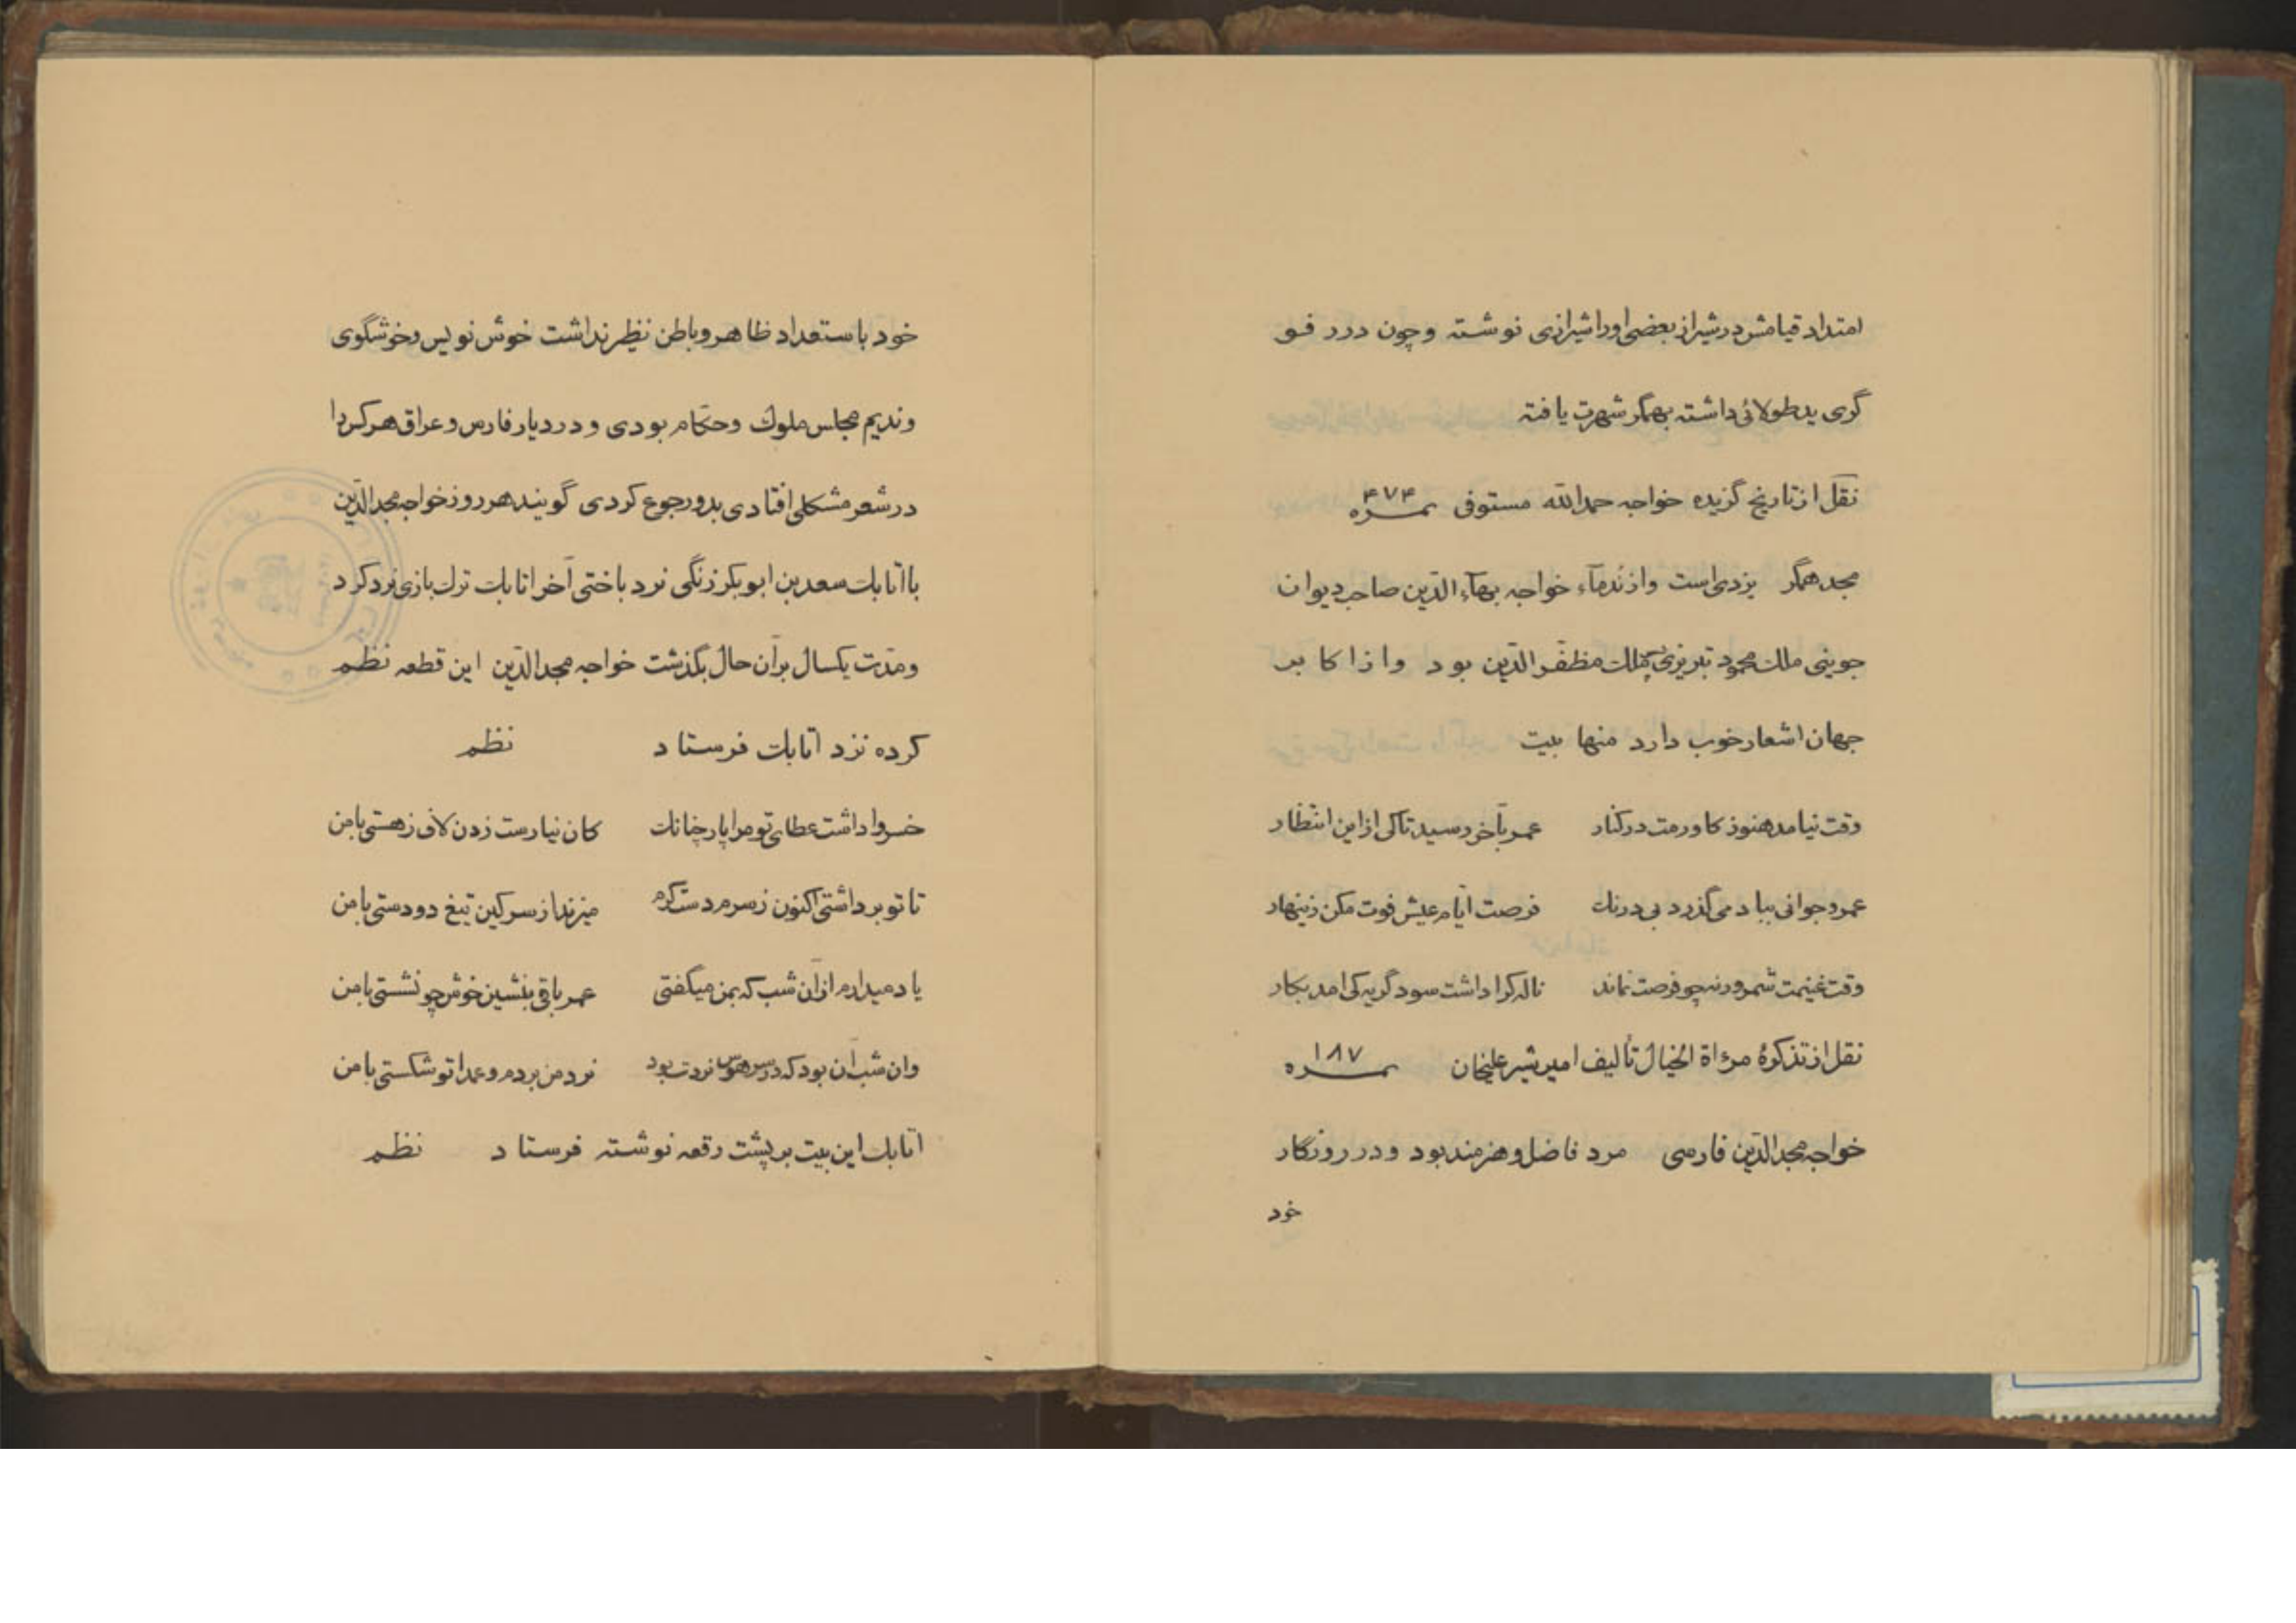 امتداد قیامش در شیراز بعضی اورا شیرازی نوشته و چون در رفو
گری ید طولائی داشته بهمگر شهرت یافته
نقل از تاریخ گزیده خواجه حمدالله مستوفی نمره ۴۷۴
مجد همگر یزدی است و از ندمآء خواجه بهآء الدّین صاحب دیوان
جوینی ملک محمود تبریزی ملک مظفّر الدّین بود و از اکابر
جهان اشعار خوب دارد منها بیت
وقت نیامد هنوز کاورمت در کنار عمر بآخر رسید تاکی از این انتظار
عمر و جوانی بباد می گذرد بی درنک فرصت ایّام عیش فوت مکن زینهار
وقت غنیمت شمر ورنه چو فرصت نماند ناله کرا داشت سود گریه کی امد بکار
نقل از تذکرهٔ مرءاة الخیال تألیف امیر شیر علیخان نمره ۱۸۷
خواجه مجد الدّین فارسی مرد فاضل و هنرمند بود و در روزگار
خود
خود باستعداد ظاهر و باطن نظیر نداشت خوش نویس و خوشگوی
و ندیم مجلس ملوک و حکّام بودی و در دیار فارس و عراق هرکس را
در شعر مشکلی افتادی بدو رجوع کردی گویند هر روز خواجه مجد الدّین
با اتابک سعد بن ابوبکر زنگی نرد باختی آخر اتابک ترک بازی نرد کرد
و مدّت یکسال بر آن حال بگذشت خواجه مجد الدّین این قطعه نظم
کرده نزد اتابک فرستاد نظم
خسروا داشت عطای تو مرا پار چنانک کان نیارست زدن لاف ز هستی با من
تا تو برداشتی اکنون ز سرم دست کرم میزند از سر کین تیغ دو دستی با من
یاد میدارم از آن شب که بمن میگفتی عمر باقی بنشین خوش چو نشستی با من
وان شب آن بود که در سر هوس نردت بود نرد من بردم و عمدا تو شکستی با من
اتابک این بیت بر پشت رقعه نوشته فرستاد نظم